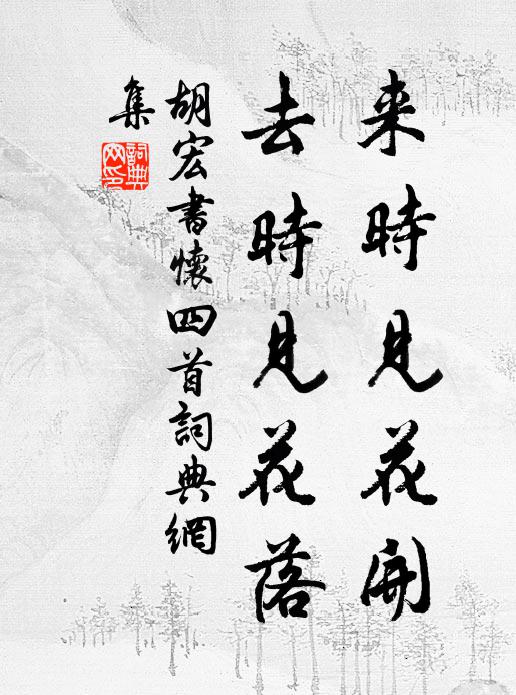 来時見花開
去時見花落
胡宏書懷四首詞典網
集
詞典
网印